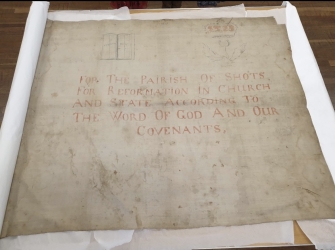 FOR THE PARISH OF SHOTS,
FOR REFORMATION IN CHURCH
AND STATE ACCORDING TO
THE WORD OF GOD AND OUR
COVENANTS.